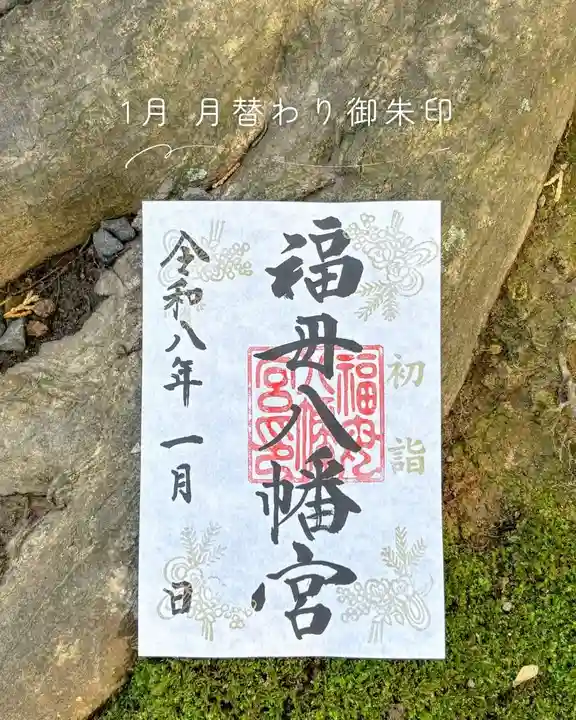 1月 月替わり御朱印
初詣
福母八幡宮
福母八幡宮印
令和八年一月 日